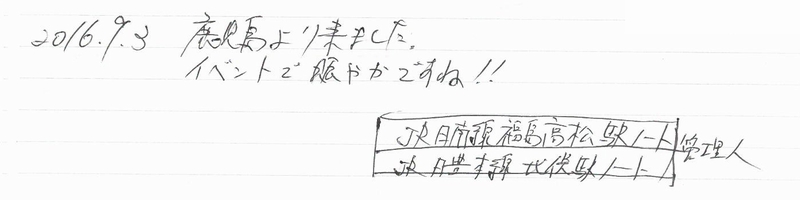 2016.9.3 鹿児島より来ました。
イベントで賑やかですね!!
JR日南線福島高松駅ノート
JR日豊本線北俣駅ノート
管理人